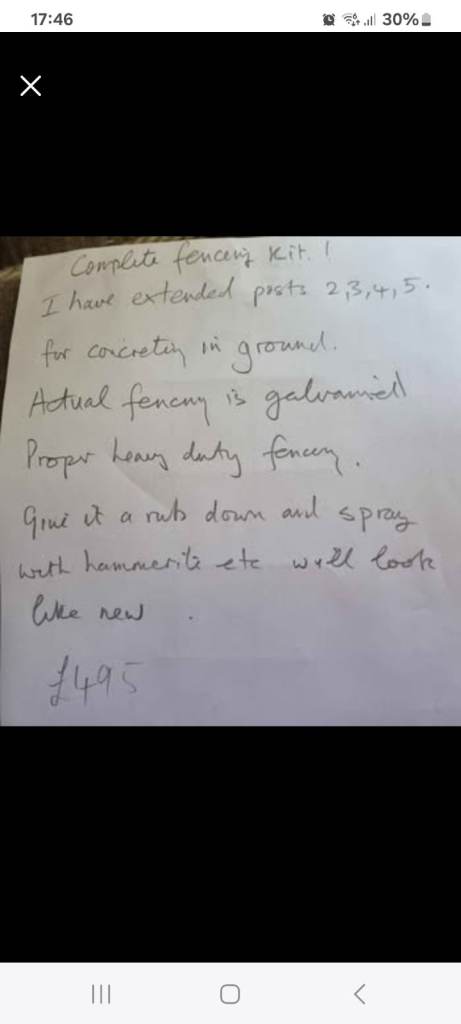 17:46
30%
Complete fencing kit. !
I have extended posts 2,3,4,5.
for concreting in ground.
Actual fencing is galvanised
Proper heavy duty fencing.
Give it a rub down and spray
with hammerite etc will look
like new .
£495